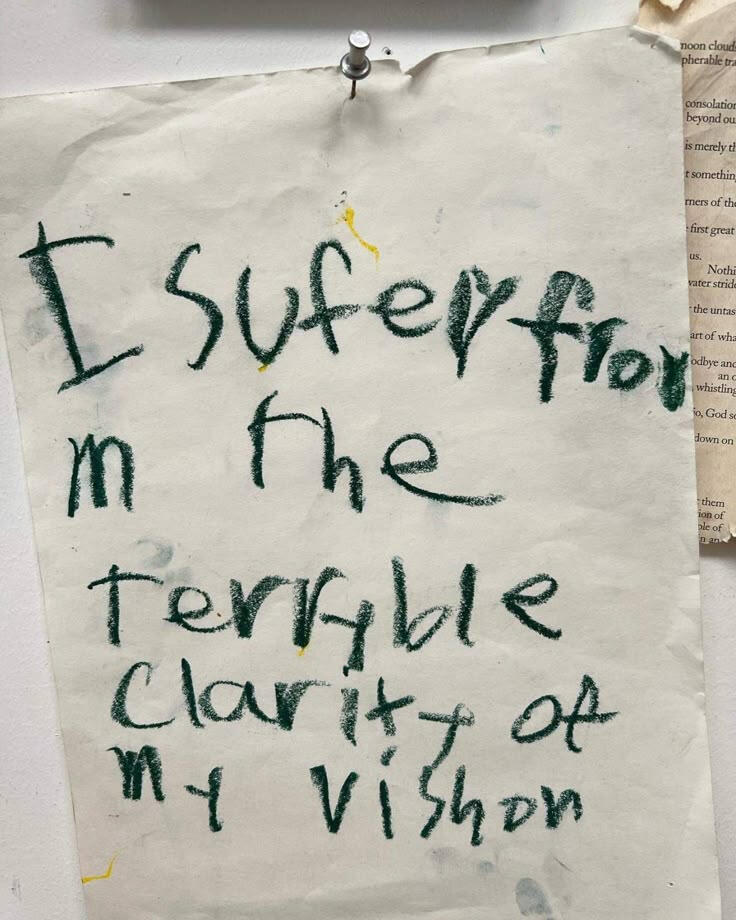 I sufer from
m the
terryble
Clarity of
my vishon
noon cloud
pherable tra
consolation
beyond ou
is merely th
t something
rners of the
first great
us.
Nothi
vater stride
the untas
art of wha
odbye and
an o
whistling
io, God s
down on
them
ion of
ple of
n an